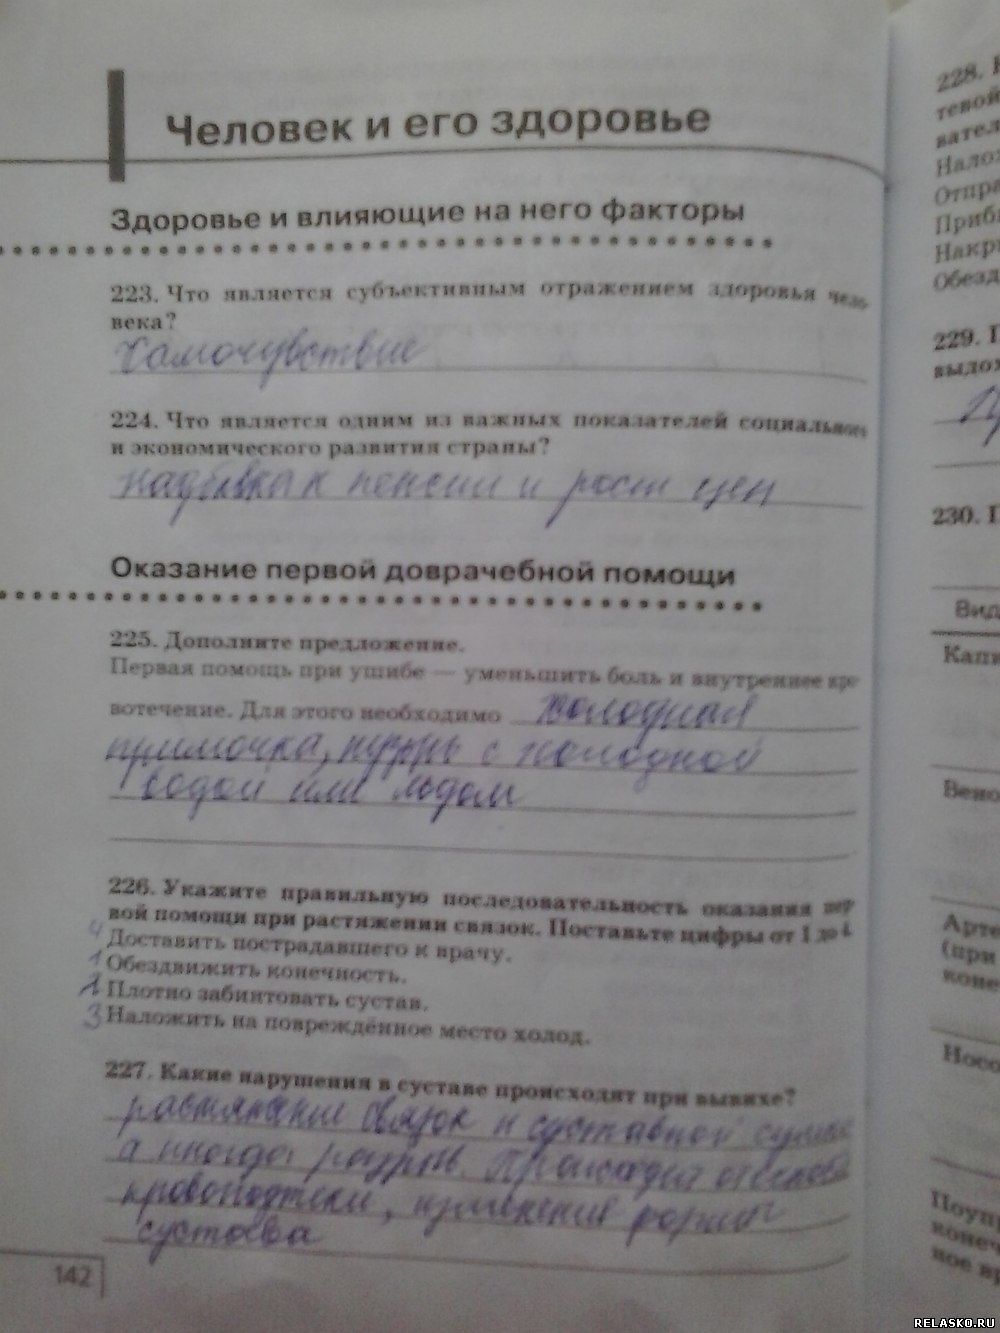 Человек и его здоровье
Здоровье и влияющие на него факторы
223. Что является субъективным отражением здоровья чело-
века?
Самочувствие
224. Что является одним из важных показателей социального
и экономического развития страны?
надбавка к пенсии и рост цен
Оказание первой доврачебной помощи
225. Дополните предложение.
Первая помощь при ушибе — уменьшить боль и внутреннее кро-
вотечение. Для этого необходимо холодная
примочка, пузырь с холодной
водой или льдом
226. Укажите правильную последовательность оказания пер-
вой помощи при растяжении связок. Поставьте цифры от 1 до 4.
4 Доставить пострадавшего к врачу.
1 Обездвижить конечность.
2 Плотно забинтовать сустав.
3 Наложить на повреждённое место холод.
227. Какие нарушения в суставе происходят при вывихе?
растяжение связок и суставной сумки
а иногда разрыв.
кровоподтеки, изменение формы
сустава
142
228.
тевой
вател
Налож
Отпра
Приб
Накр
Обезд
229.
выдох
230.
Вид
Капи
Вено
Арте
(при
коне
Носо
конеч
ное
RELASKO.RU